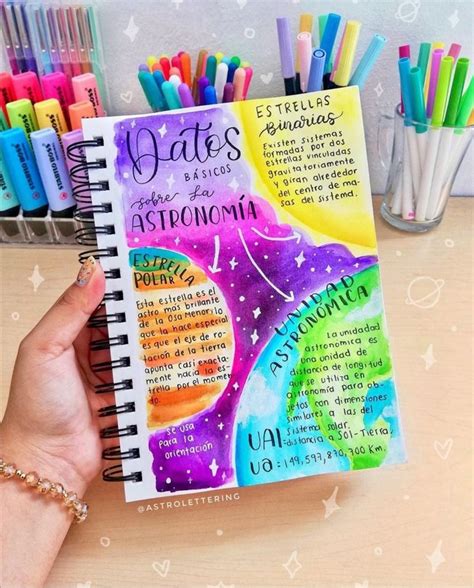 @ASTROLETTERING
Datos
BÁSICOS
sobre la
ASTRONOMÍA
ESTRELLAS
Binarias
Existen sistemas
formadas por dos
estrellas vinculadas
gravitatoriamente
y giran alrededor
del centro de ma-
sas del sistema.
ESTRELLA
POLAR
Esta estrella es el
astro más brillante
de la Osa Menor; lo
que la hace especial
es que el eje de ro-
tación de la tierra
apunta casi exacta-
mente hacia la es-
trella por el momen
to.
se usa
para la
orientación
UNIDAD
ASTRONÓMICA
La unidadad
astronomica es
una unidad de
distancia de longitud
que se utiliza en
astronomía para ob-
jetos con dimensiones
similares a las del
Sistema solar.
UA1= distancia a Sol-Tierra.
ua = 149,597,870,700 Km.
@ASTROLETTERING